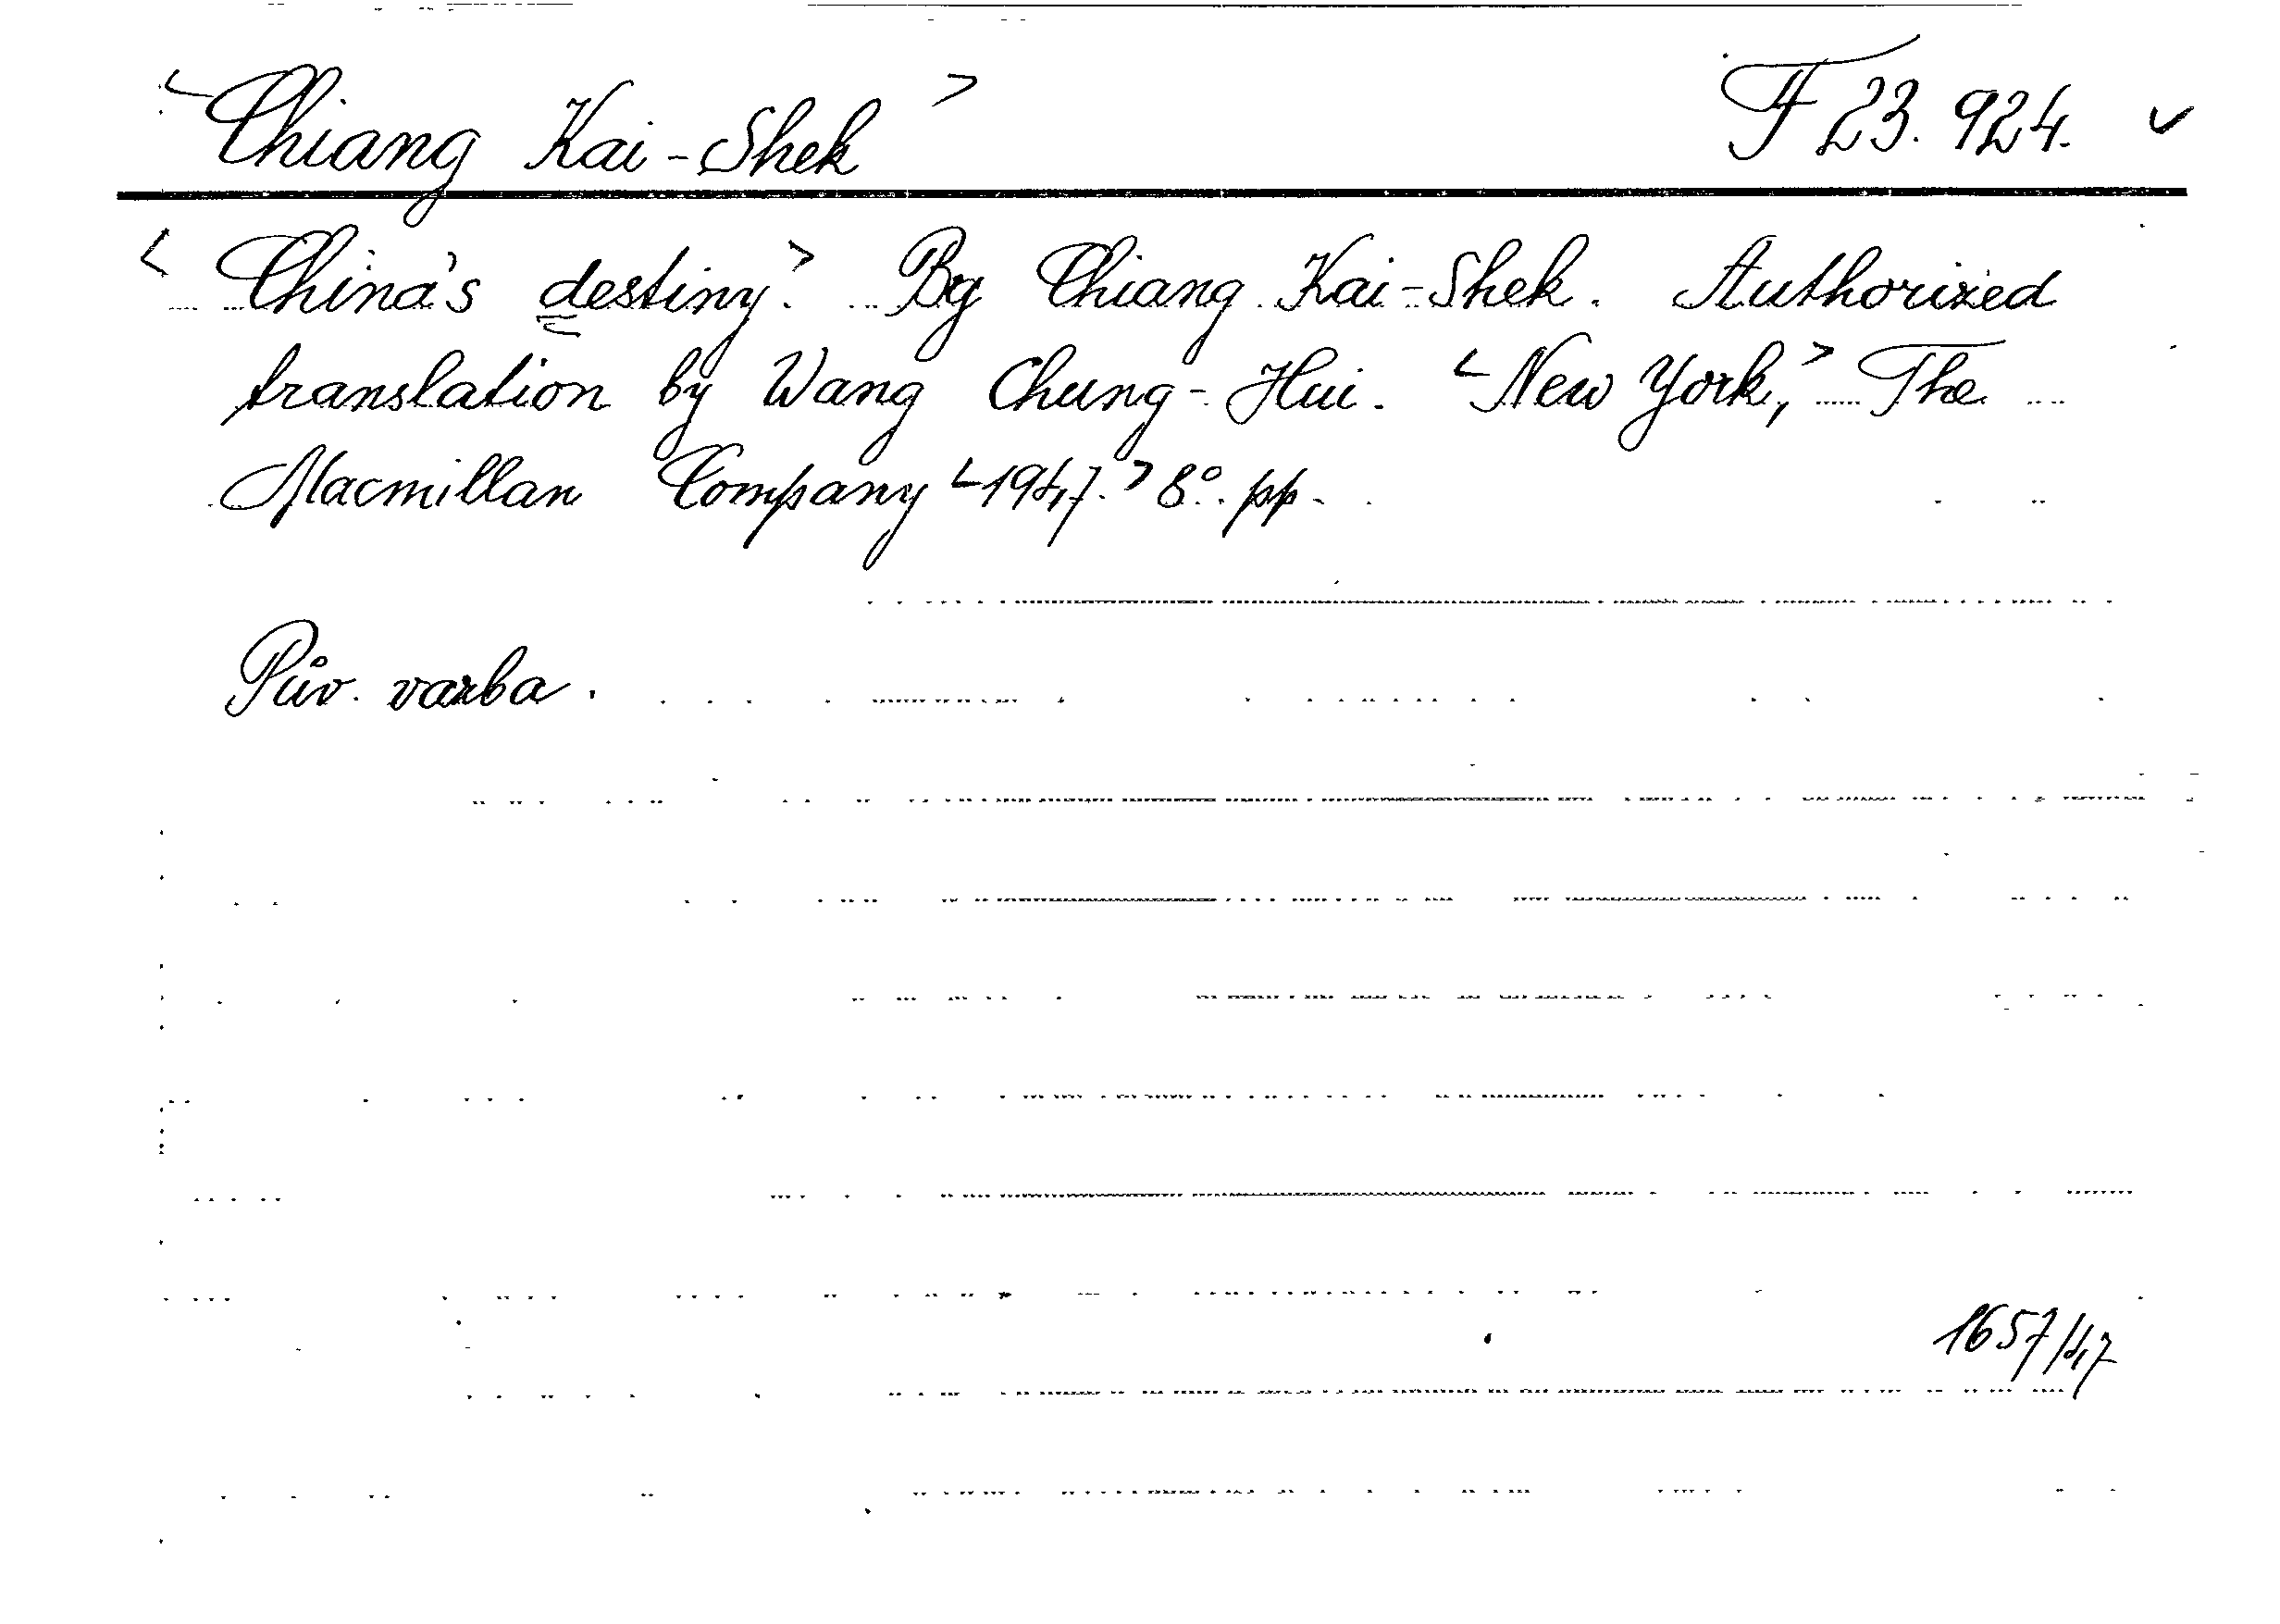 <Chiang Kai-Shek> F 23.924.
<China's destiny.> By Chiang Kai-Shek. Authorized
translation by Wang Chung-Hui. <New York,> The
Macmillan Company <1947.> 8°. pp.
Pův. vazba.
1657/47